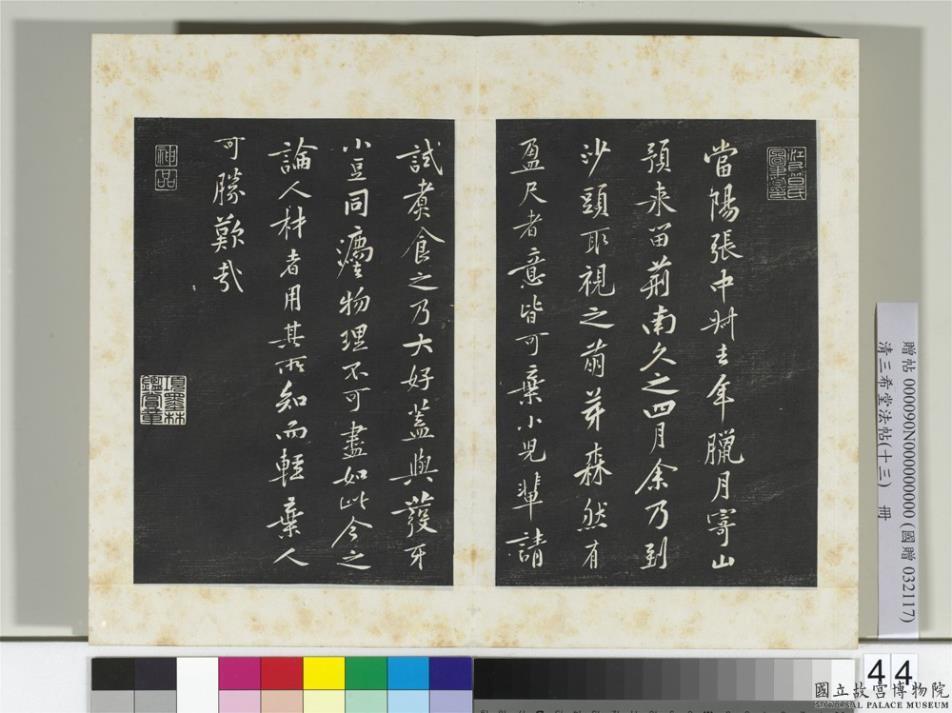 當陽張中叔去年臘月寄山
預來留荊南久之四月余乃到
沙頭取視之萌芽森然有
盈尺者意皆可棄小兒輩請
試煮食之乃大好蓋與發牙
小豆同𤼵物理不可盡如此今之
論人材者用其所知而輕棄人
可勝歎哉
神品
項墨林鑑賞章
贈帖 000090N000000000 (國贈 032117)
清三希堂法帖(十三) 冊
44
國立故宮博物院
NATIONAL PALACE MUSEUM